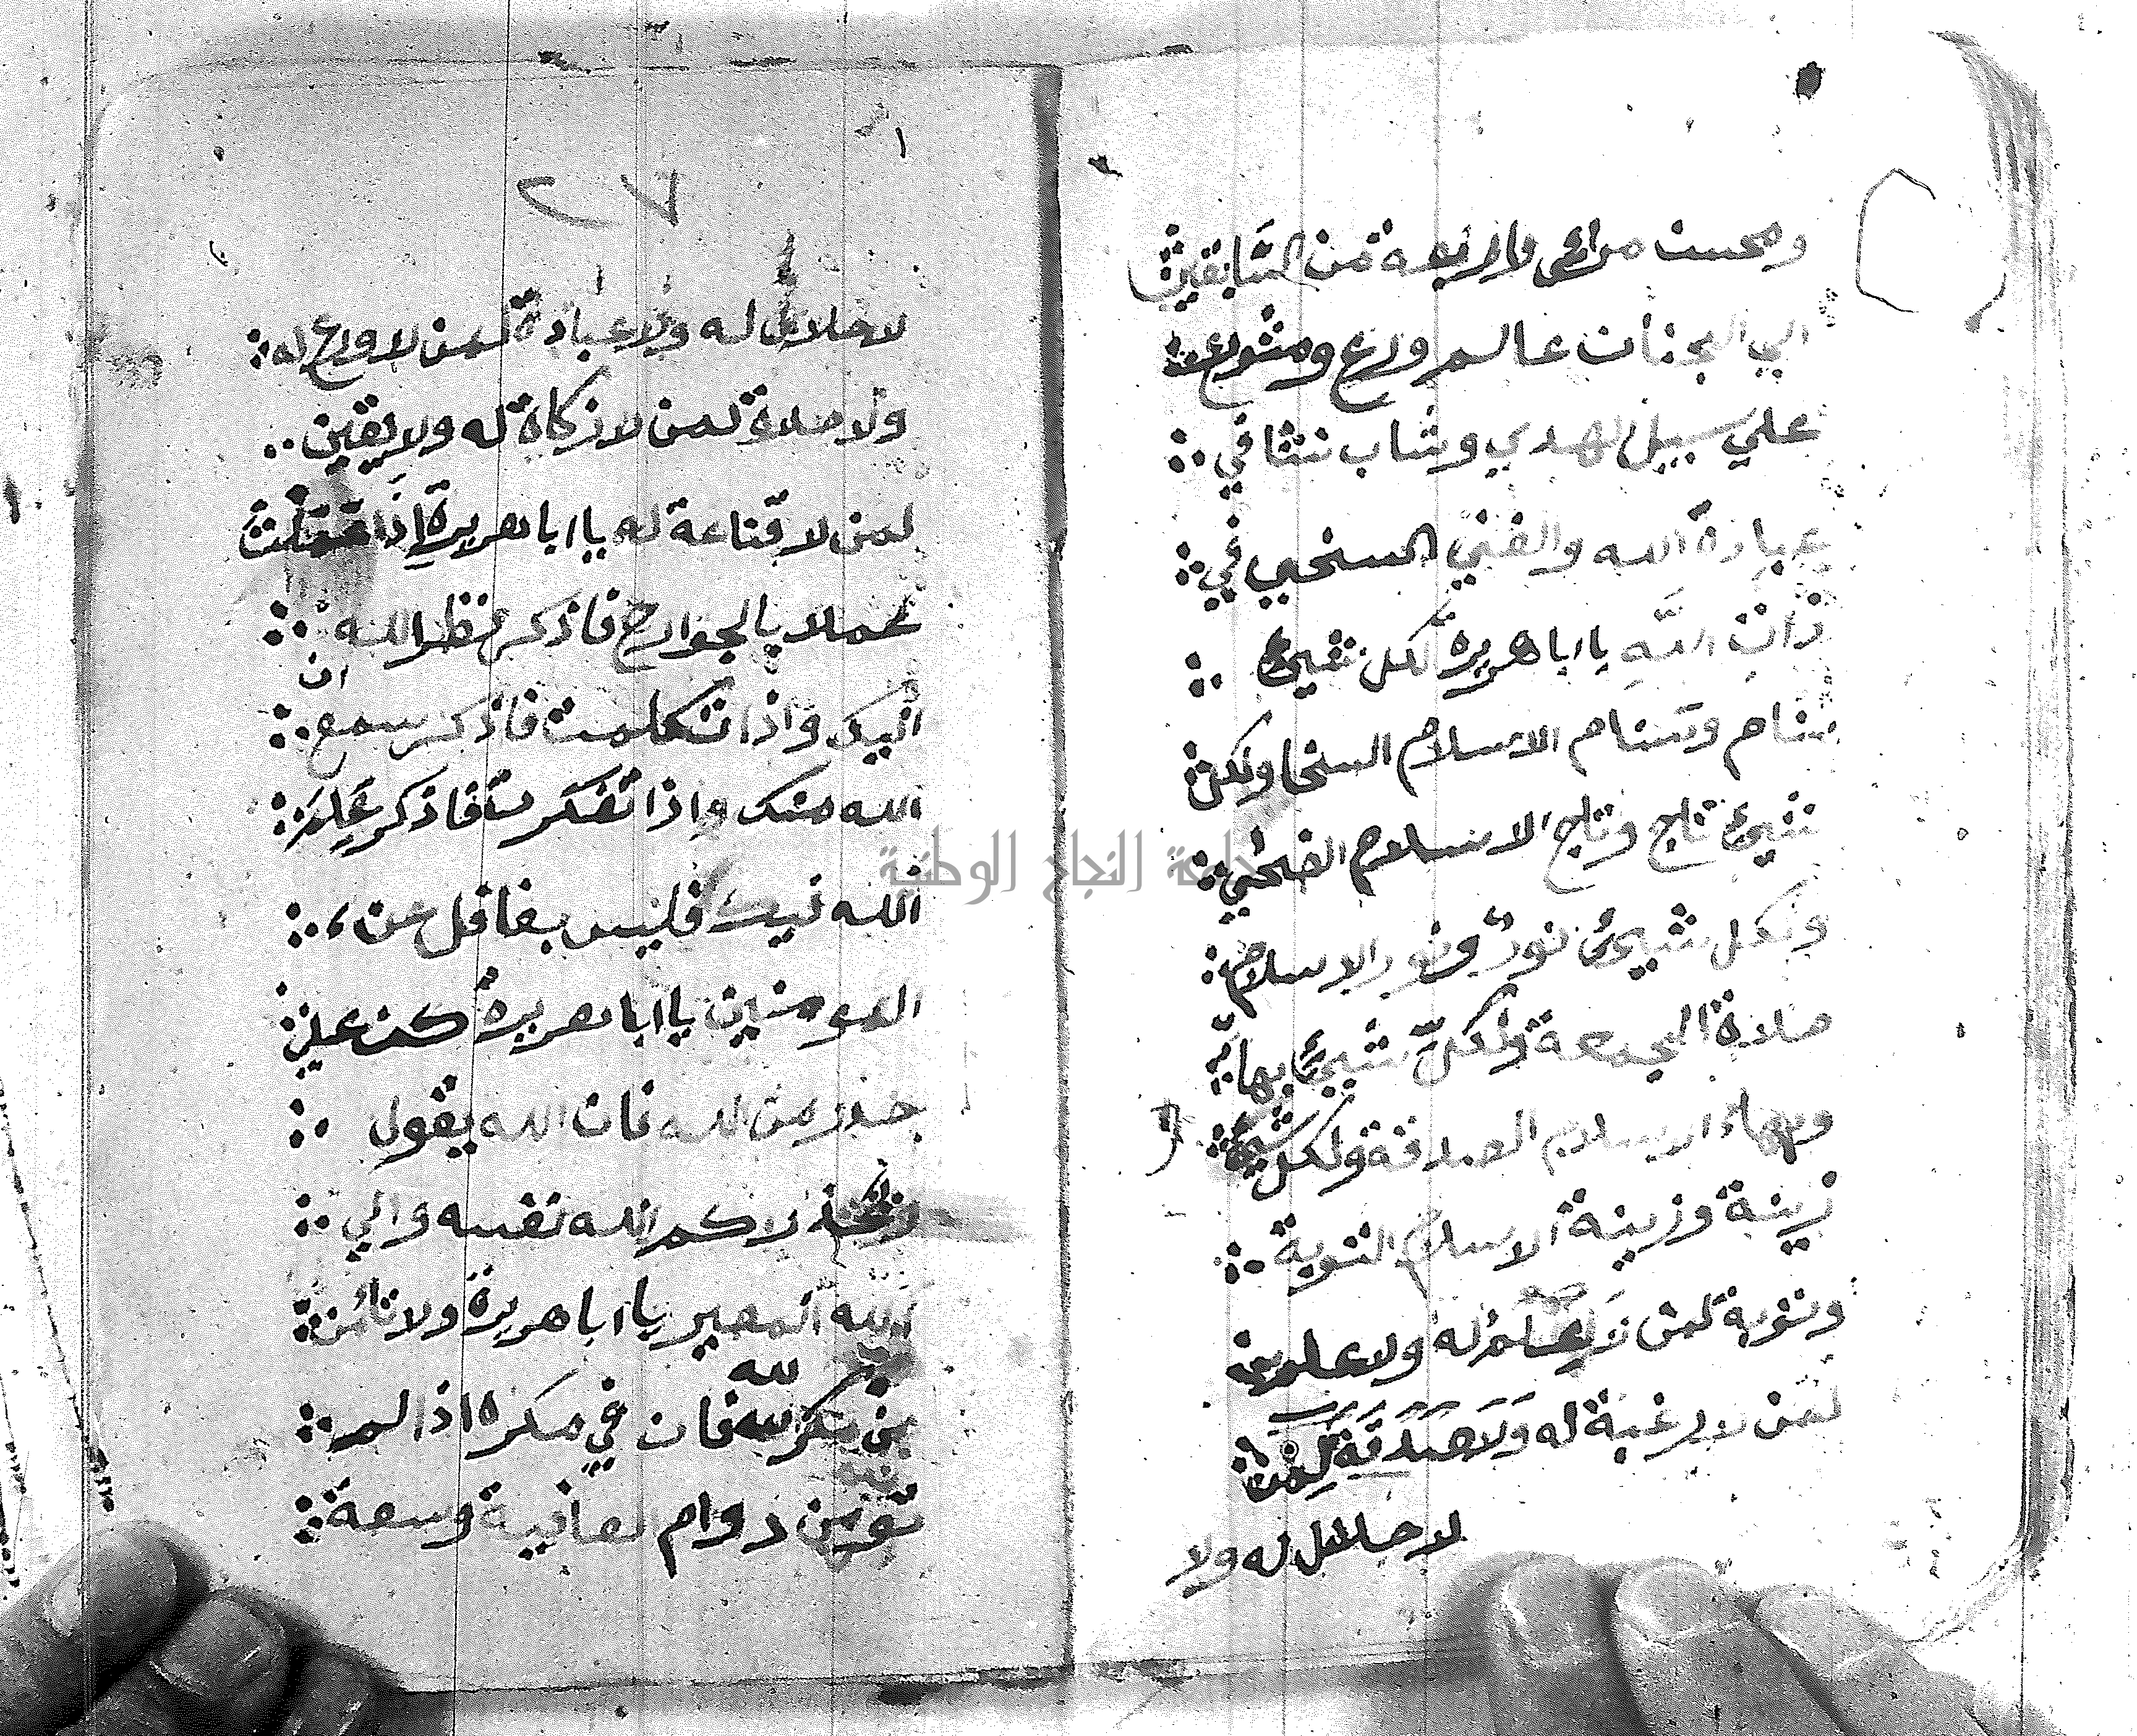 من السابقين
الي الجنات عالم ورع ومتورع
علي سبيل الهدي وشاب نشا في
عبادة الله والغني السخي في
ذات الله يا ابا هريرة لكل شيئ
سنام وسنام الاسلام السخا ولكل
شيئ تاج وتاج الاسلام الضحي
ولكل شيئ نور ونور الاسلام
صلاة الجمعة ولكل شيئ بها
وبهاء الاسلام الصدقة ولكل شيئ
زينة وزينة الاسلام التوبة
وتوبة لمن لا له ولا علم
لمن لا رغبة له ولا صدقة لمن
لا حلال له ولا
٢٧
لا حلال له ولا عبادة لمن لا ورع له
ولا صلاة لمن لا زكاة له ولا يقين
لمن لا قناعة له يا ابا هريرة اذا
عملا بالجوارح فاذكر نظر الله
اليك واذا تكلمت فاذكر ان سمع
الله منك واذا تفكرت فاذكر علم
الله فيك فليس بغافل عن
المومنين يا ابا هريرة كن علي
حذر من الله فان الله يقول
ويحذركم الله نفسه والي
الله المصير يا ابا هريرة ولا تامن
من مكر الله فان في مكره اذا لم
دوام العافية وسعة
جامعة النجاح الوطنية